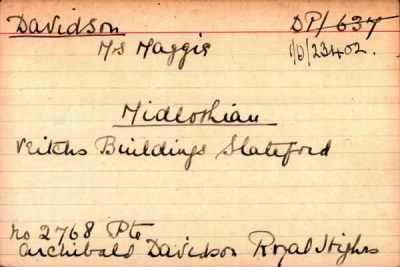 Davidson DP/637
Mrs Maggie 1/D/23402.
Midlothian
Veitchs Buildings Slateford
No 2768 Pte
Archibald Davidson Royal Highrs